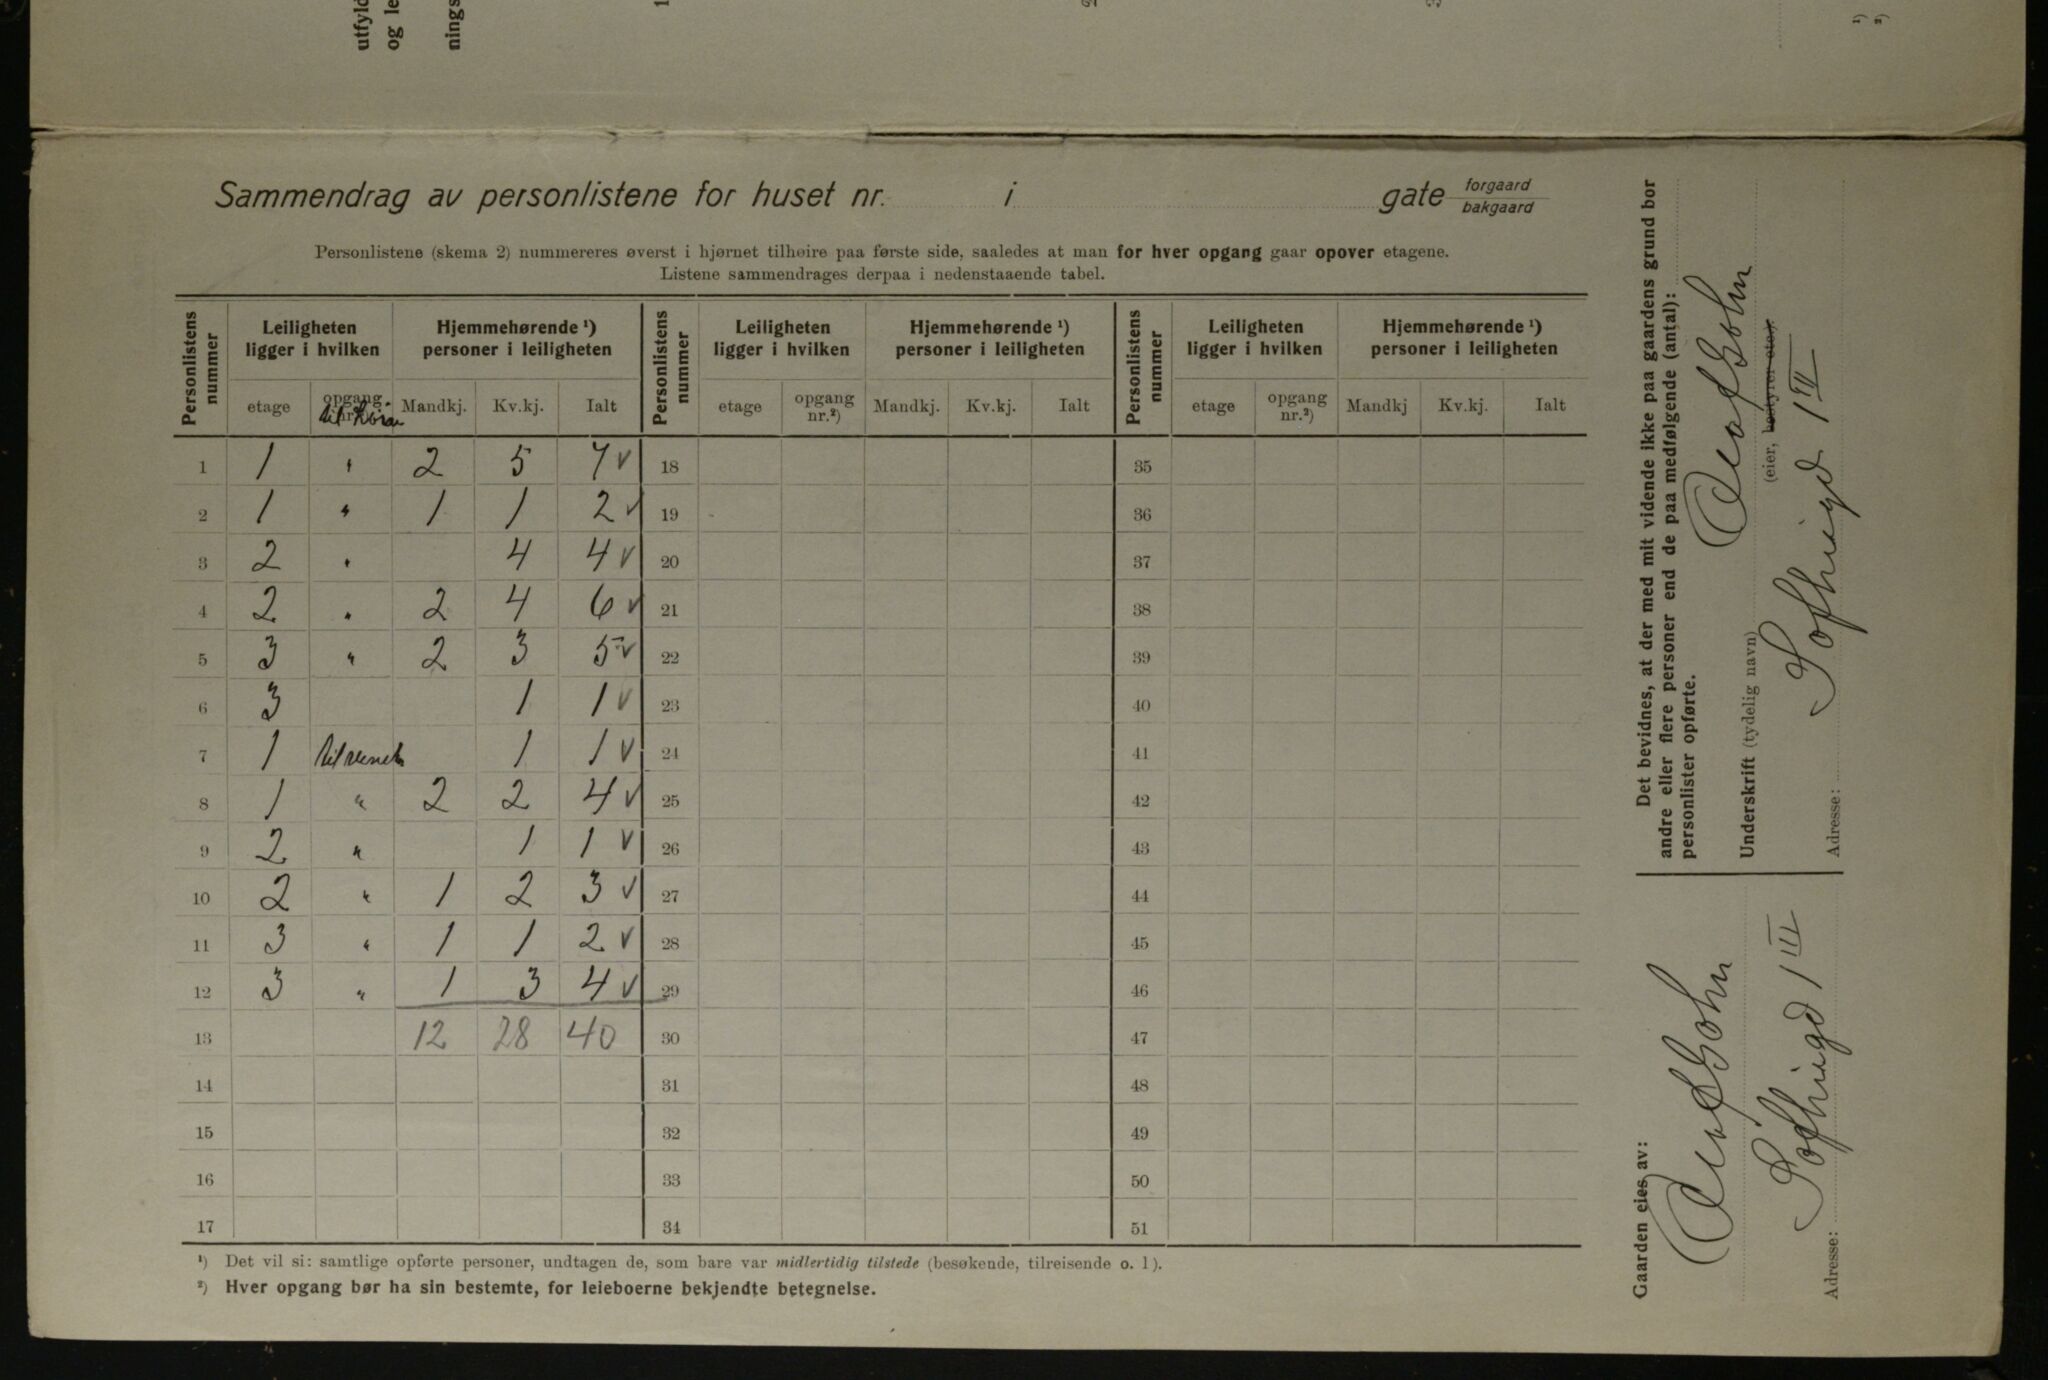 utfyld
og le
nings
1
2
3
¹)
²)
Sammendrag av personlistene for huset nr. i gate forgaard bakgaard
Personlistene (skema 2) nummereres øverst i hjørnet tilhøire paa første side, saaledes at man for hver opgang gaar opover etagene.
Listene sammendrages derpaa i nedenstaaende tabel.
Personlistens nummer Leiligheten ligger i hvilken Hjemmehørende ¹) personer i leiligheten Personlistens nummer Leiligheten ligger i hvilken Hjemmehørende ¹) personer i leiligheten Personlistens nummer Leiligheten ligger i hvilken Hjemmehørende ¹) personer i leiligheten
etage opgang nr. Mandkj. Kv.kj. Ialt etage opgang nr.²) Mandkj. Kv.kj. Ialt etage opgang nr.²) Mandkj Kv.kj. Ialt
1 1 " 2 5 7 ✓ 18 35
2 1 " 1 1 2 ✓ 19 36
3 2 " 4 4 ✓ 20 37
4 2 " 2 4 6 ✓ 21 38
5 3 " 2 3 5 ✓ 22 39
6 3 1 1 ✓ 23 40
7 1 til 1 1 ✓ 24 41
8 1 " 2 2 4 ✓ 25 42
9 2 " 1 1 ✓ 26 43
10 2 " 1 2 3 ✓ 27 44
11 3 " 1 1 2 ✓ 28 45
12 3 " 1 3 4 ✓ 29 46
13 12 28 40 30 47
14 31 48
15 32 49
16 33 50
17 34 51
¹) Det vil si: samtlige opførte personer, undtagen de, som bare var midlertidig tilstede (besøkende, tilreisende o. l).
²) Hver opgang bør ha sin bestemte, for leieboerne bekjendte betegnelse.
Det bevidnes, at der med mit vidende ikke paa gaardens grund bor
andre eller flere personer end de paa medfølgende (antal):
personlister opførte.
Underskrift (tydelig navn)
(eier, bestyrer etc.).
Adresse: Sofhiegd 1 III
Gaarden eies av:
Adresse: Sofhiegd 1 III